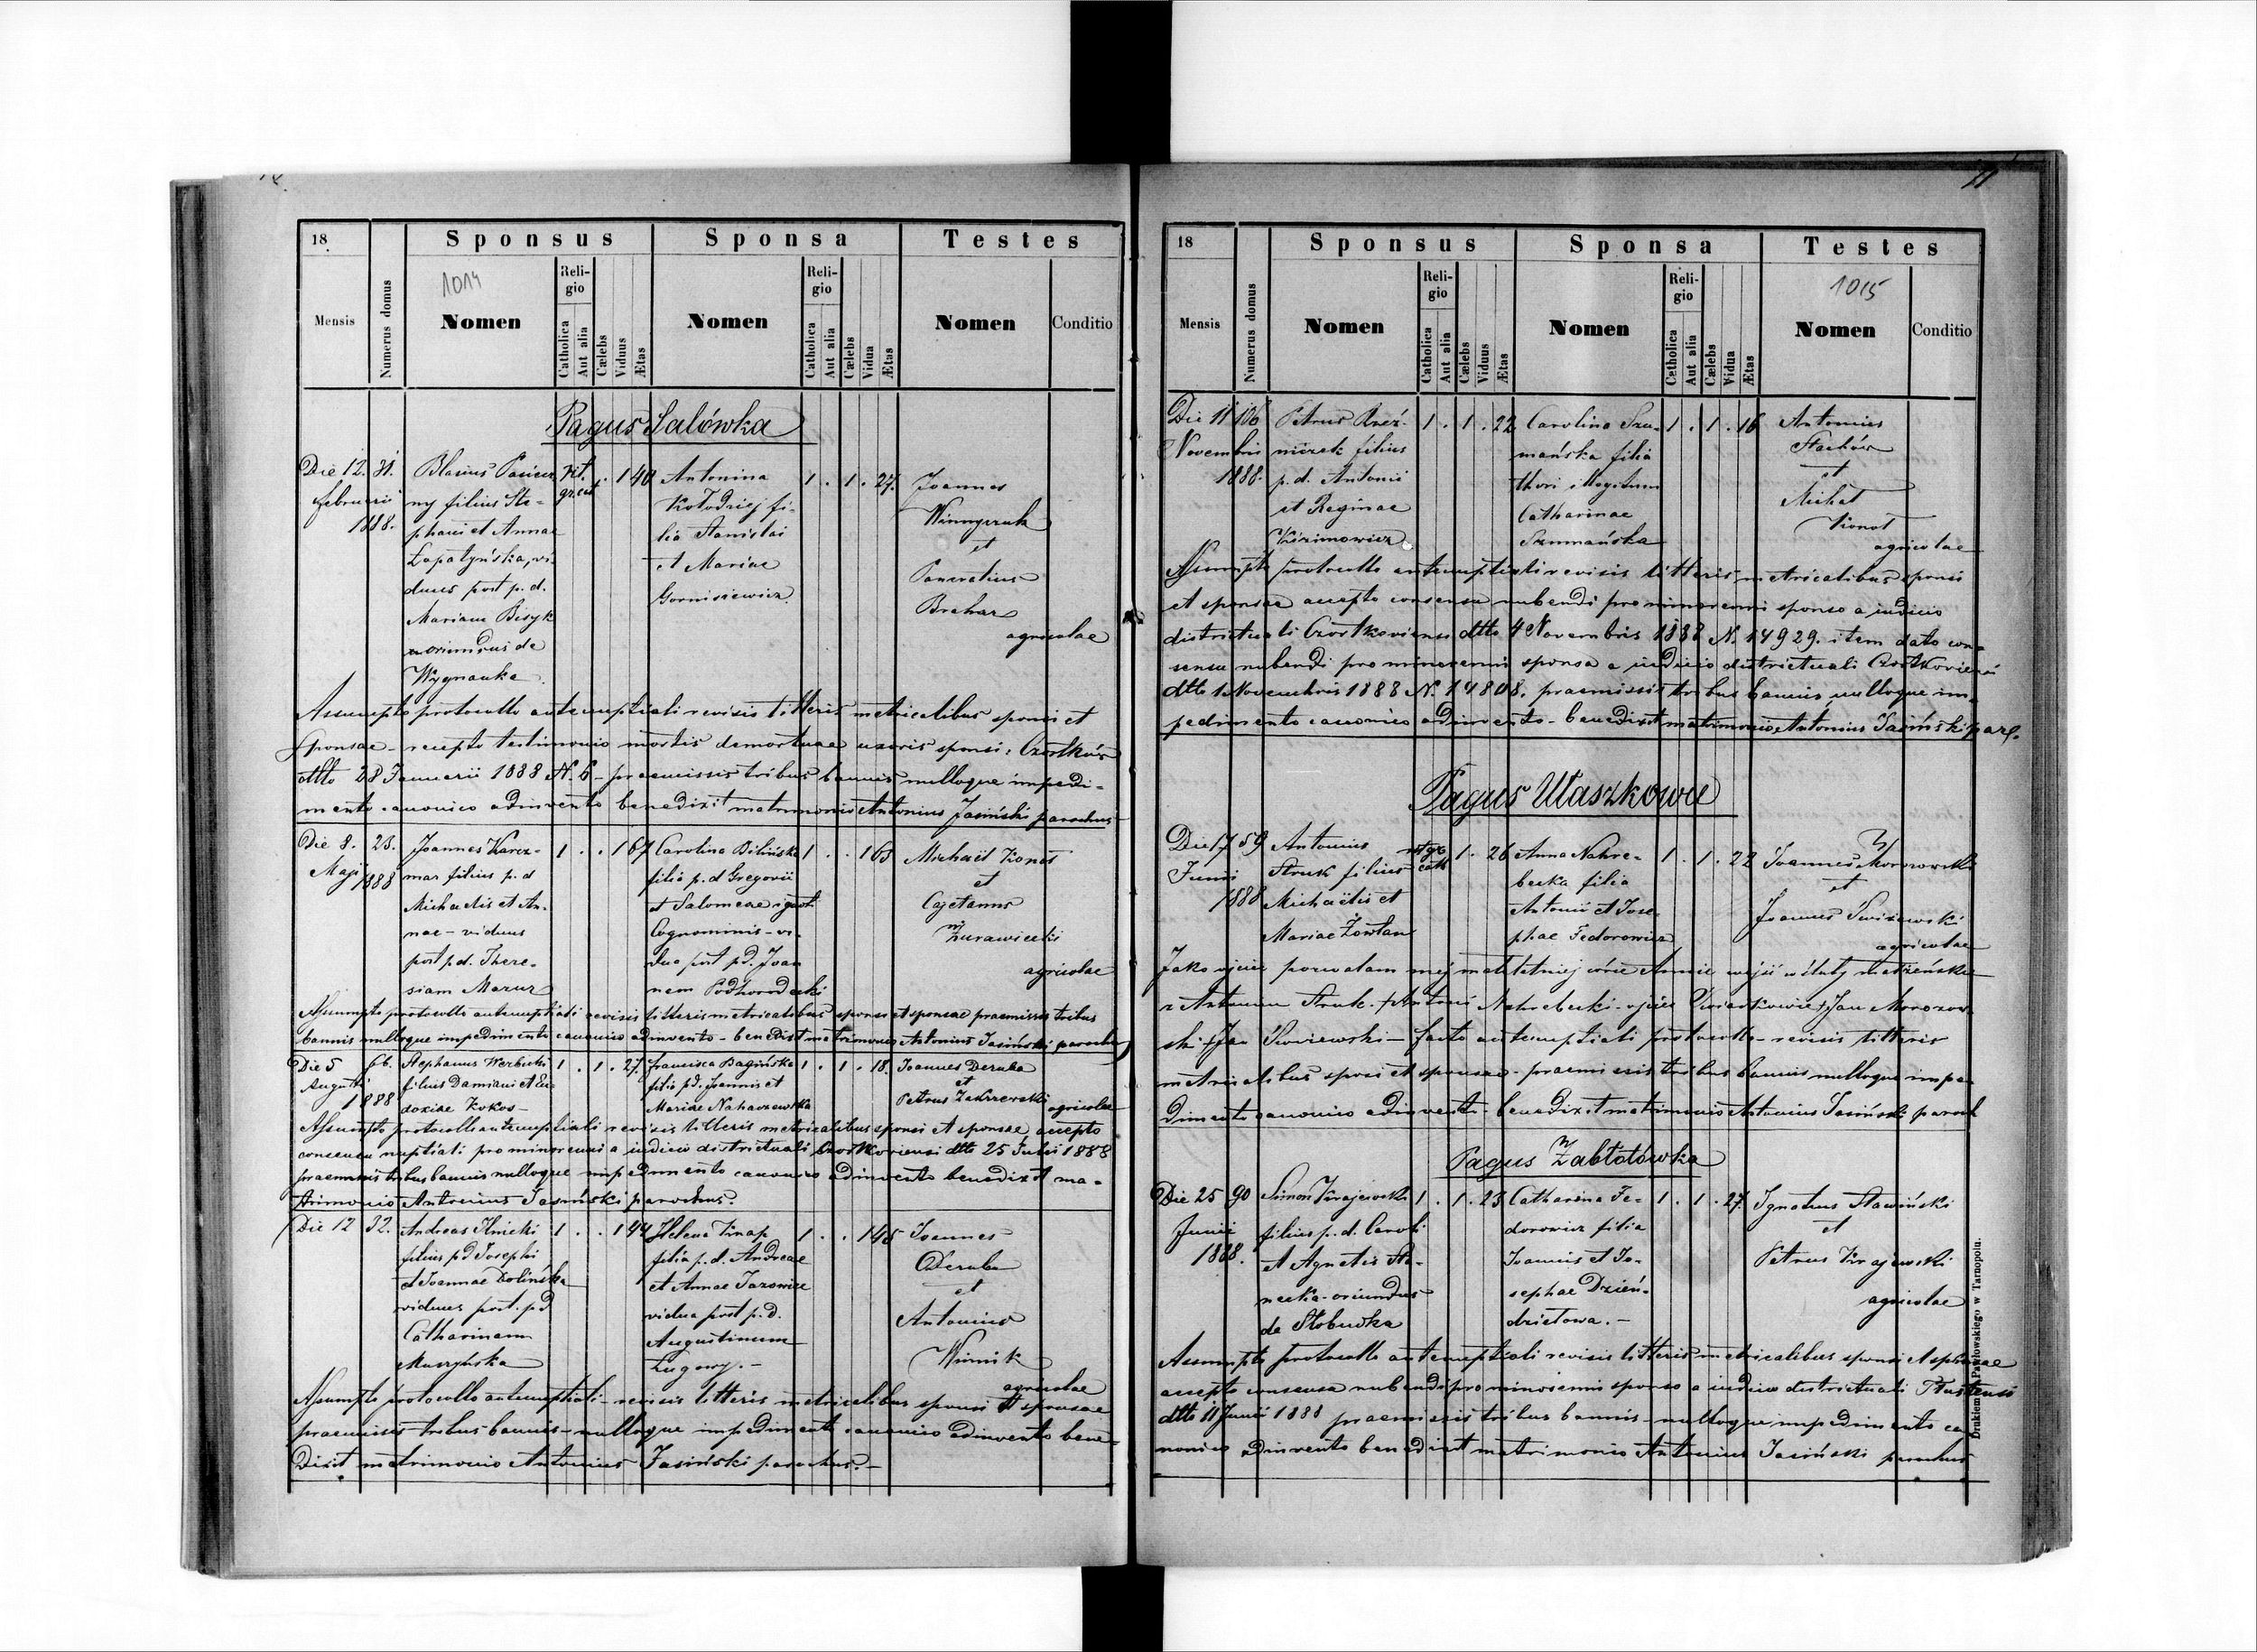 18
Sponsus
Sponsa
Testes
Mensis
Numerus domus
1014
Nomen
Religio
Catholica
Aut alia
Cælebs
Viduus
Ætas
Nomen
Religio
Catholica
Aut alia
Cælebs
Vidua
Ætas
Nomen
Conditio
Pagus Salówka
Die 12. 31.
februarii
1888.
Blasius
ny filius Ste-
phani et Annae
Łapatyńska, vi-
duus post p. d.
Mariam Bisyk
oriundus de
Wygnanka
rit. . . 1 40
Antonina
Kołodziej fi-
lia Stanislai
et Mariae
1 . 1 . 27.
Joannes
et
Pancratius
agricolae
Assumpto protocollo antenuptiali revisis litteris metricalibus sponsi et
sponsae – recepto testimonio mortis demortuae uxoris sponsi: Czortków
dtto 28 Januarii 1888 N. 6 – praemissis tribus bannis nulloque impedi-
mento canonico adinvento benedixit matrimonio Antonius Jasiński parochus
Die 8. 23.
Maji
1888
Joannes Karcz-
mar filius p. d
Michaelis et An-
nae – viduus
post p. d. There-
siam Mazur
1 . . 1 67
Carolina Bilińska
filia p. d Gregorii
et Salomeae ignoti
Cognominis – vi-
dua post p d. Joan
nem Podhorodecki
1 . . 1 63
Michaël Konot
et
Cajetanus
Żurawiecki
agricolae
Assumpto protocollo antenuptiali revisis litteris metricalibus sponsi et sponsae praemissis tribus
bannis nulloque impedimento canonico adinvento – benedixit matrimonio Antonius Jasiński parochus
Die 5 66.
Augusti
1888
Stephanus Werbicki
filius Damiani et Eu
doxiae Kokos –
1 . 1 . 27.
Francisca Bagińska
filia p d. Joannis et
Mariae
1 . 1 . 18.
Joannes Deruba
et
Petrus Zakrzewski
agricolae
Assumpto protocollo antenuptiali revisis litteris metricalibus sponsi et sponsae, accepto
consensu nuptiali pro minorenni a indicio districtuali Czortkoviensi dtto 25 Julii 1888
praemissis tribus bannis nulloque impedimento canonico adinvento benedixit ma-
trimonio Antonius Jasiński parochus.
Die 12 32.
Andreas Ilnicki
filius p d Josephi
et Joannae Zolińska
viduus post. p d
Catharinam
Muszyńska
1 . . 1 44
Helena Knap
filia p. d. Andreae
et Annae
vidua post p. d.
Augustinum
Ługowy. –
1 . . 1 45
Joannes
Deruba
et
Antonius
Winnik
agricolae
Assumpto protocollo antenuptiali – revisis litteris metricalibus sponsi et sponsae
praemissis tribus bannis – nulloque impedimento canonico adinvento bene-
dixit matrimonio Antonius Jasiński parochus. –
18
Sponsus
Sponsa
Testes
Mensis
Numerus domus
Nomen
Religio
Catholica
Aut alia
Cælebs
Viduus
Ætas
Nomen
Religio
Catholica
Aut alia
Cælebs
Vidua
Ætas
1015
Nomen
Conditio
Die 11 106
Novembris
1888.
Petrus
filius
p. d. Antonii
et Reginae
1 . 1 . 22
Carolina Szu-
mańska filia
thori illegitimi
Catharinae
Szumańska
1 . 1 . 16
Antonius
Stachów
et
Michał
Konot
agricolae
Assumpto protocollo antenuptiali revisis litteris metricalibus sponsi
et sponsae accepto consensu nubendi pro minorenni sponso a indicio
districtuali Czortkoviensi dtto 4 Novembris 1888 N. 14929. item dato con-
sensu nubendi pro minorenni sponsa a indicio districtuali Czortkoviensi
dtto 1 Novembris 1888 N. 14808. praemissis tribus bannis nulloque im-
pedimento canonico adinvento – benedixit matrimonio Antonius Jasiński par.
Pagus Ułaszkowce
Die 17 59
Junii
1888
Antonius
Struk filius
Michaëlis et
Mariae Żowtan
1 . 26
Anna Nahre-
becka filia
Antonii et Jose-
phae Fedorowicz
1 . 1 . 22
Joannes Morozowski
et
Joannes
agricolae
Jako ojciec pozwalam mej małoletniej córce Annie wejść w śluby małżeńskie
z Antonim Struk. + Antoni Nahrebecki – ojciec Świadkowie + Jan Morozow-
ski + Jan – facto antenuptiali protocollo – revisis litteris
metricalibus sponsi et sponsae – praemissis tribus bannis nulloque impe-
dimento canonico adinvento – benedixit matrimonio Antonius Jasiński paroch
Pagus Zabłotówka
Die 25 90
Junii
1888.
Simon Krajewski
filius p. d. Caroli
et Agnetis
oriundus
de Słobudka
1 . 1 . 23
Catharina Fe-
dorowicz filia
Joannis et Jo-
sephae Dzień-
dzielowa. –
1 . 1 . 27.
Ignatius Sławiński
et
Petrus Krajewski
agricolae
Assumpto protocollo antenuptiali revisis litteris metricalibus sponsi et sponsae
accepto consensu nubendi pro minorenni sponso a indicio districtuali
dtto 11 Junii 1888 praemissis tribus bannis – nulloque impedimento ca-
nonico adinvento benedixit matrimonio Antonius Jasiński parochus
Drukiem Pawłowskiego w Tarnopolu.